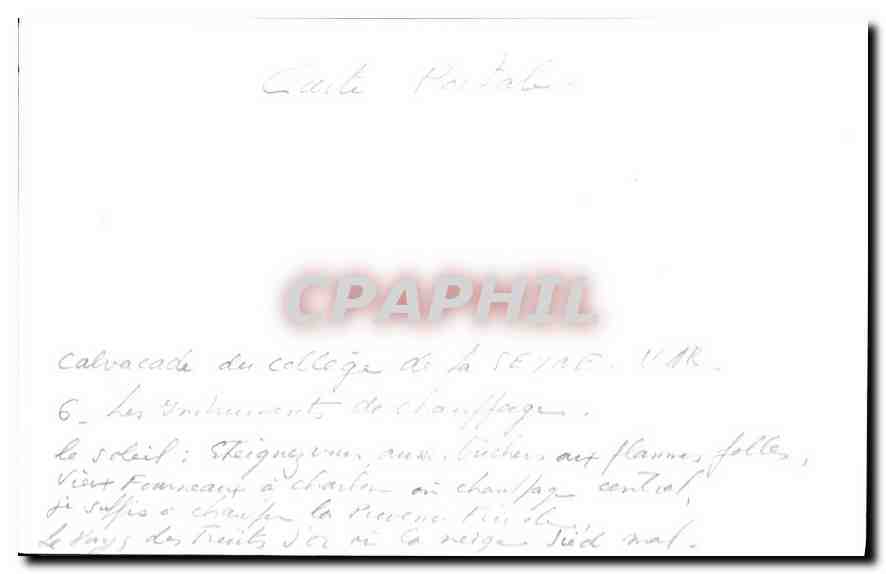 Carte Postale
CPAPHIL
Calvacade du collège de la SEYNE. VAR.
6 - Les instruments de chauffage.
Le soleil : Eteignez vous aux flammes folles,
Vieux Fourneaux à charbon ou chauffage central,
je suffis à chauffer la
Le Pays des Fruits d'or où la neige sied mal.